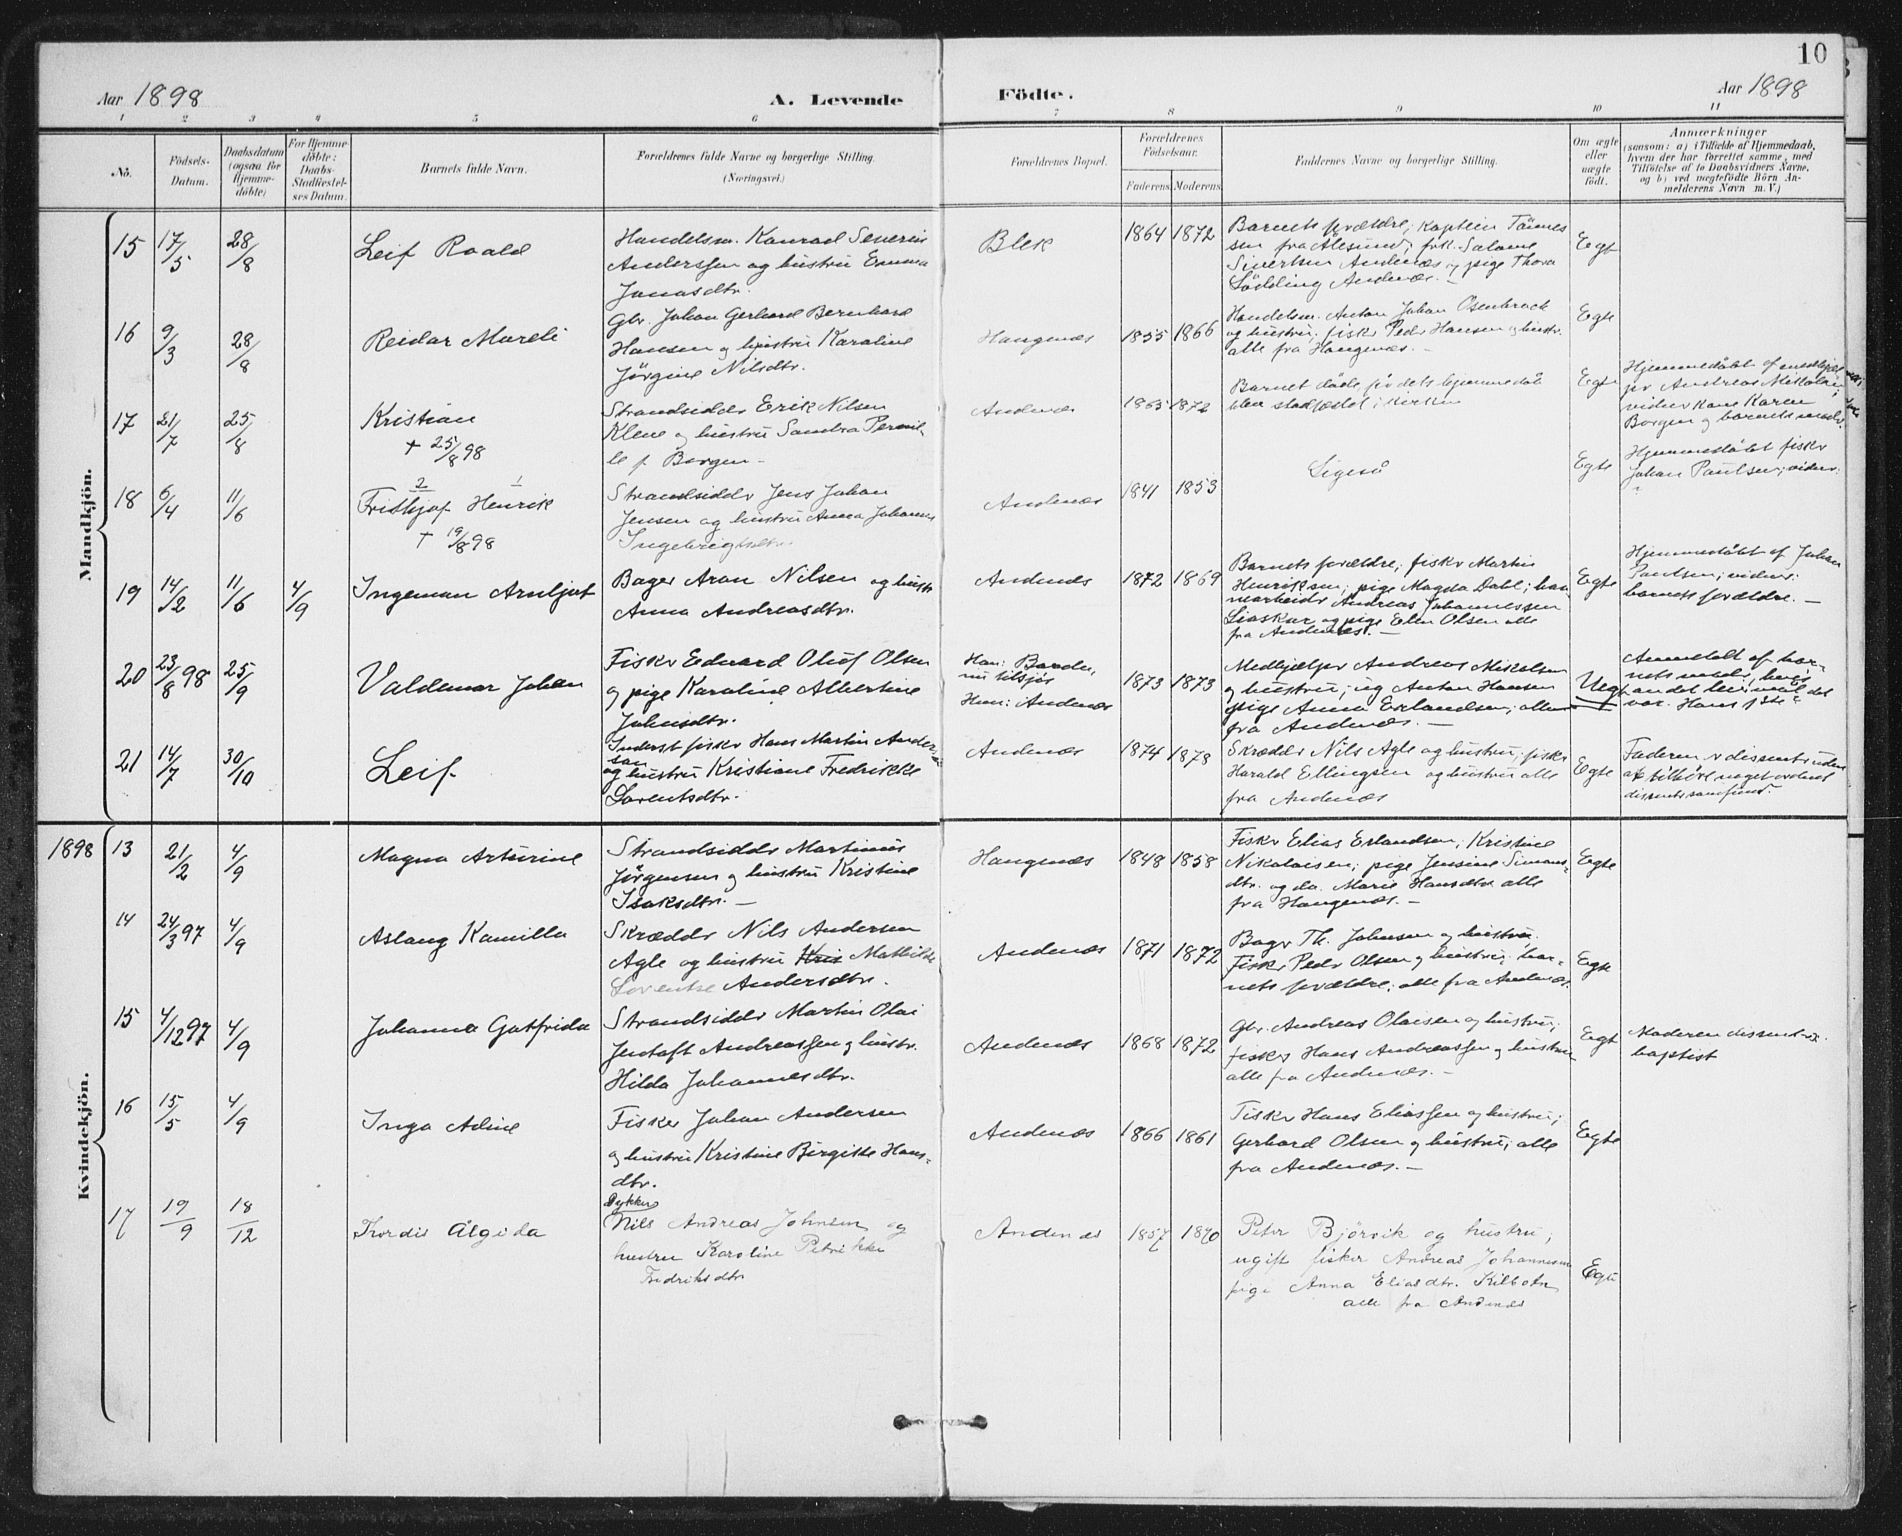 10
Aar 1898
A. Levende
Födte.
Aar 1898
1 2 3 4 5 6 7 8 9 10 11
No.
Födsels-Datum.
Daabsdatum (ogsaa for Hjemme-döbte)
For Hjemme-döbte: Daabs-Stadfæstel-ses Datum.
Barnets fulde Navn.
Forældrenes fulde Navne og borgerlige Stilling.
(Næringsvei.)
Forældrenes Bopæl.
Forældrenes Födselsaar.
Faderens Moderens
Faddernes Navne og borgerlige Stilling.
Om ægte eller uægte födt.
Anmærkninger
(saasom: a) i Tilfælde af Hjemmedaab,
hvem der har forrettet samme, med
Tilföielse af to Daabsvidners Navne,
og b) ved uægtefödte Börn An-
melderens Navn m. V.)
Mandkjön.
15 17/5 28/8 Leif Roald
Handelsm. Konrad Severin
Anderssen og hustru Emma
Jonasdtr.
Blek 1864 1872
Barnets forældre; Kaptein Tönnes
sen fra Ålesund; frk. Salome
Sivertsen Andenæs og pige Thora
Lödding Andenæs. —
Egt
16 9/3 28/8 Reidar Mareli
Gbr. Johan Gerhard Bernhard
Hansen og hustru Karoline
Jørgine Nilsdtr.
Haugenæs 1855 1866
Handelsm. Anton Johan Osenbrock
og hustru; fisker Peder Hansen og hustr.
alle fra Haugenæs. —
Egte
17 21/7 25/8 Kristian
+ 25/8 98
Strandsidder Erik Nilsen
Klene og hustru Sandra Pernil-
le f. Borgen —
Andenæs 1865 1872
Barnet døde før dets hjemmedåb
blev stadfæstet i kirken
Egte
Hjemmedøbt af medhjæl
per Andreas Mikalsen;
vidner kone Karen
Borgen og barnets moder.
18 6/4 11/6
2 1
Fridtjof Henrik
+ 19/8 98
Strandsidder Jens Johan
Jensen og hustru Anna Johanna
Ingebrigtsdtr.
Andenæs 1841 1853
Ligeså
Egte
Hjemmedøbt fisker
Johan Paulsen; vidner:
"
19 14/2 11/6 4/9 Ingeman Arnljot
Bager Aron Nilsen og hustr.
Anna Andreasdtr.
Andenæs 1872 1869
Barnets forældre; fisker Martin
Henriksen; pige Magda Dahl; hav
nearbeider Andreas Johannessen
Liaskar og pige Elen Olsen alle
fra Andenæs. —
Egte
Hjemmedøbt af Johan
Paulsen; vidner:
barnets forældre. —
20 23/8 98 25/9 Valdemar Johan
Fisker Edvard Oluf Olsen
og pige Karoline Albertine
Johnsdtr.
Han: Bardu,
nu tilsjøs
Hun: Andenæs
1873 1873
Medhjælper Andreas Mikalsen
og hustru; ug Anton Hansen
pige Anna Erlandsen; alle
fra Andenæs. —
Uegt
Anmeldt af bar-
nets moder, hvis
andet leiermål det
var. Hans 1ste
21 14/7 30/10 Leif
Inderst fisker Hans Martin Ander-
sen
og hustru Kristiane Fredrikke
Lorentsdtr.
Andenæs 1874 1873
Skrædder Nils Agle og hustru; fisker
Harald Ellingsen og hustru alle
fra Andenæs
Egte
Faderen er dissenter uden
at tilhøre noget ordent
dissentersamfund.
Kvindekjön.
1898 13 21/2 4/9 Magna Arturine
Strandsidder Martinus
Jørgensen og hustru Kristine
Isaksdtr. —
Haugenæs 1848 1858
Fisker Elias Erlandsen; Kristine
Nikolaisen; pige Jensine Simons-
dtr. og do. Marie Hansdtr. alle
fra Haugenæs. —
Egte
14 24/3 97 4/9 Aslaug Kamilla
Skrædder Nils Andersen
Agle og hustru Kris Mathilde
Lorentse Andersdtr.
Andenæs 1871 1872
Bager Th. Johnsen og hustru.
Fisker Peder Olsen og hustru; bar-
nets forældre; alle fra Andenæs.
Egte
15 4/12 97 4/9 Johanna Gotfrida
Strandsidder Martin Olai
Jentoft Andreassen og hustr.
Hilda Johannesdtr.
Andenæs 1868 1872
Gbr. Andreas Olaisen og hustru;
fisker Hans Andreassen og hustru
alle fra Andenæs. —
Egt
Moderen dissenter
baptist
16 15/5 4/9 Inga Adine
Fisker Johan Andersen
og hustru Kristine Birgitte Hans-
dtr.
Andenæs 1866 1861
Fisker Hans Eliassen og hustru;
Gerhard Olsen og hustru; alle
fra Andenæs. —
Egte
17 19/9 18/12 Thordis Algida
Dykker
Nils Andreas Johnsen og
hustru Karoline Petrikke
Fredriksdtr
Andenes 1857 1870
Peter Bjørvik og hustru,
ugift fisker Andreas Johannesen
pige Anna Eliasdtr. Kilbotn
alle fra Andenes
Egte